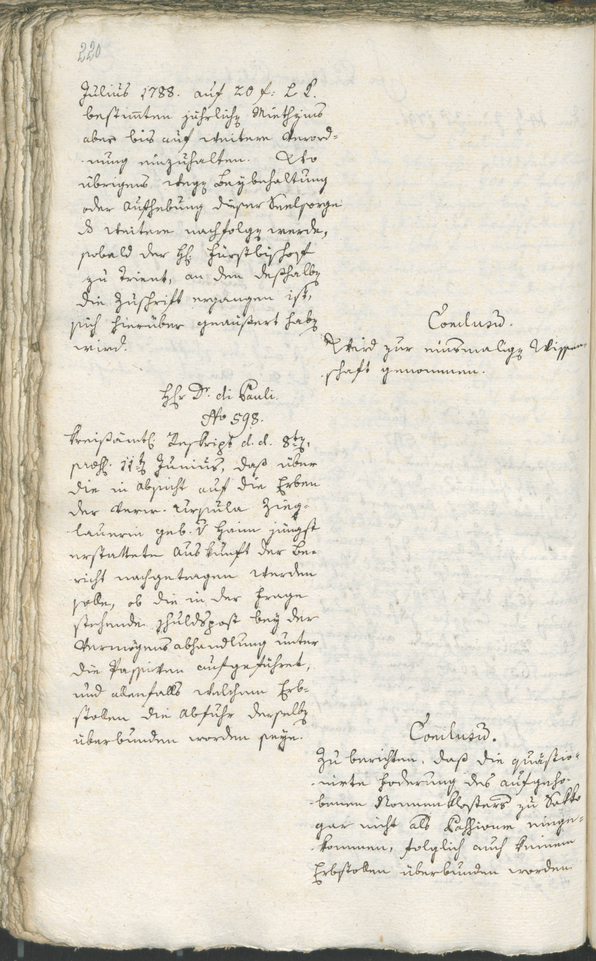 220
Julius 1788. auf 20 f: L L.
bestimten jährlichen Miethzins
aber bis auf weitere Verord-
-nung einzuhalten. Wo
übrigens wegen Beybehaltung
oder Aufhebung dieser Seelsorge
d weitere nachfolgen werde,
sobald der H. Fürstbischof
zu Trient, an den deshalben
die Zuschrift ergangen ist,
sich hierüber geäußert haben
wird.
Conclusum.
Wird zur einsmaligen Wissen-
schaft genommen.
Hr Dr. di Pauli
No 598.
Kreisämtl. Reskript d. d. 8ten,
praes. 11ten Junius, daß über
die in Absicht auf die Erben
der Verw. Ursula Zieg-
lauerin geb. v Hainn jüngst
erstattete Auskunft der Be-
richt nachgetragen werden
solle, ob die in der Frage
stehende Schuldspost bey der
Vermögensabhandlung unter
die Passiven aufgeführet,
und allenfalls welchem Erb-
stollen die Abfuhr derselben
überbunden worden seye.
Conclusum.
Zu berichten, daß die quästio-
nirte Foderung des aufgeho-
benen Nonnenklosters zu
gar nicht als Passivum einge-
kommen, folglich auch keinem
Erbstollen überbunden worden